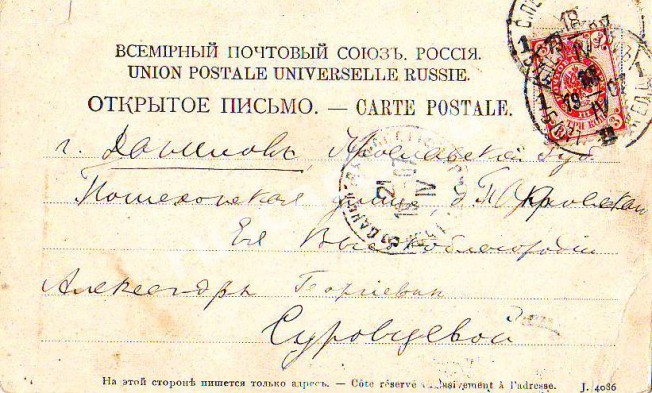 ВСЕМІРНЫЙ ПОЧТОВЫЙ СОЮЗЪ. РОССІЯ.
UNION POSTALE UNIVERSELLE RUSSIE.
ОТКРЫТОЕ ПИСЬМО. — CARTE POSTALE.
г. Даниловъ, Ярославской губ
Пошехонская улица, д.
Ея Высокоблагородію
Александрѣ
Суровцевой
На этой сторонѣ пишется только адресъ. — Côte réservé à l'adresse. J. 4086